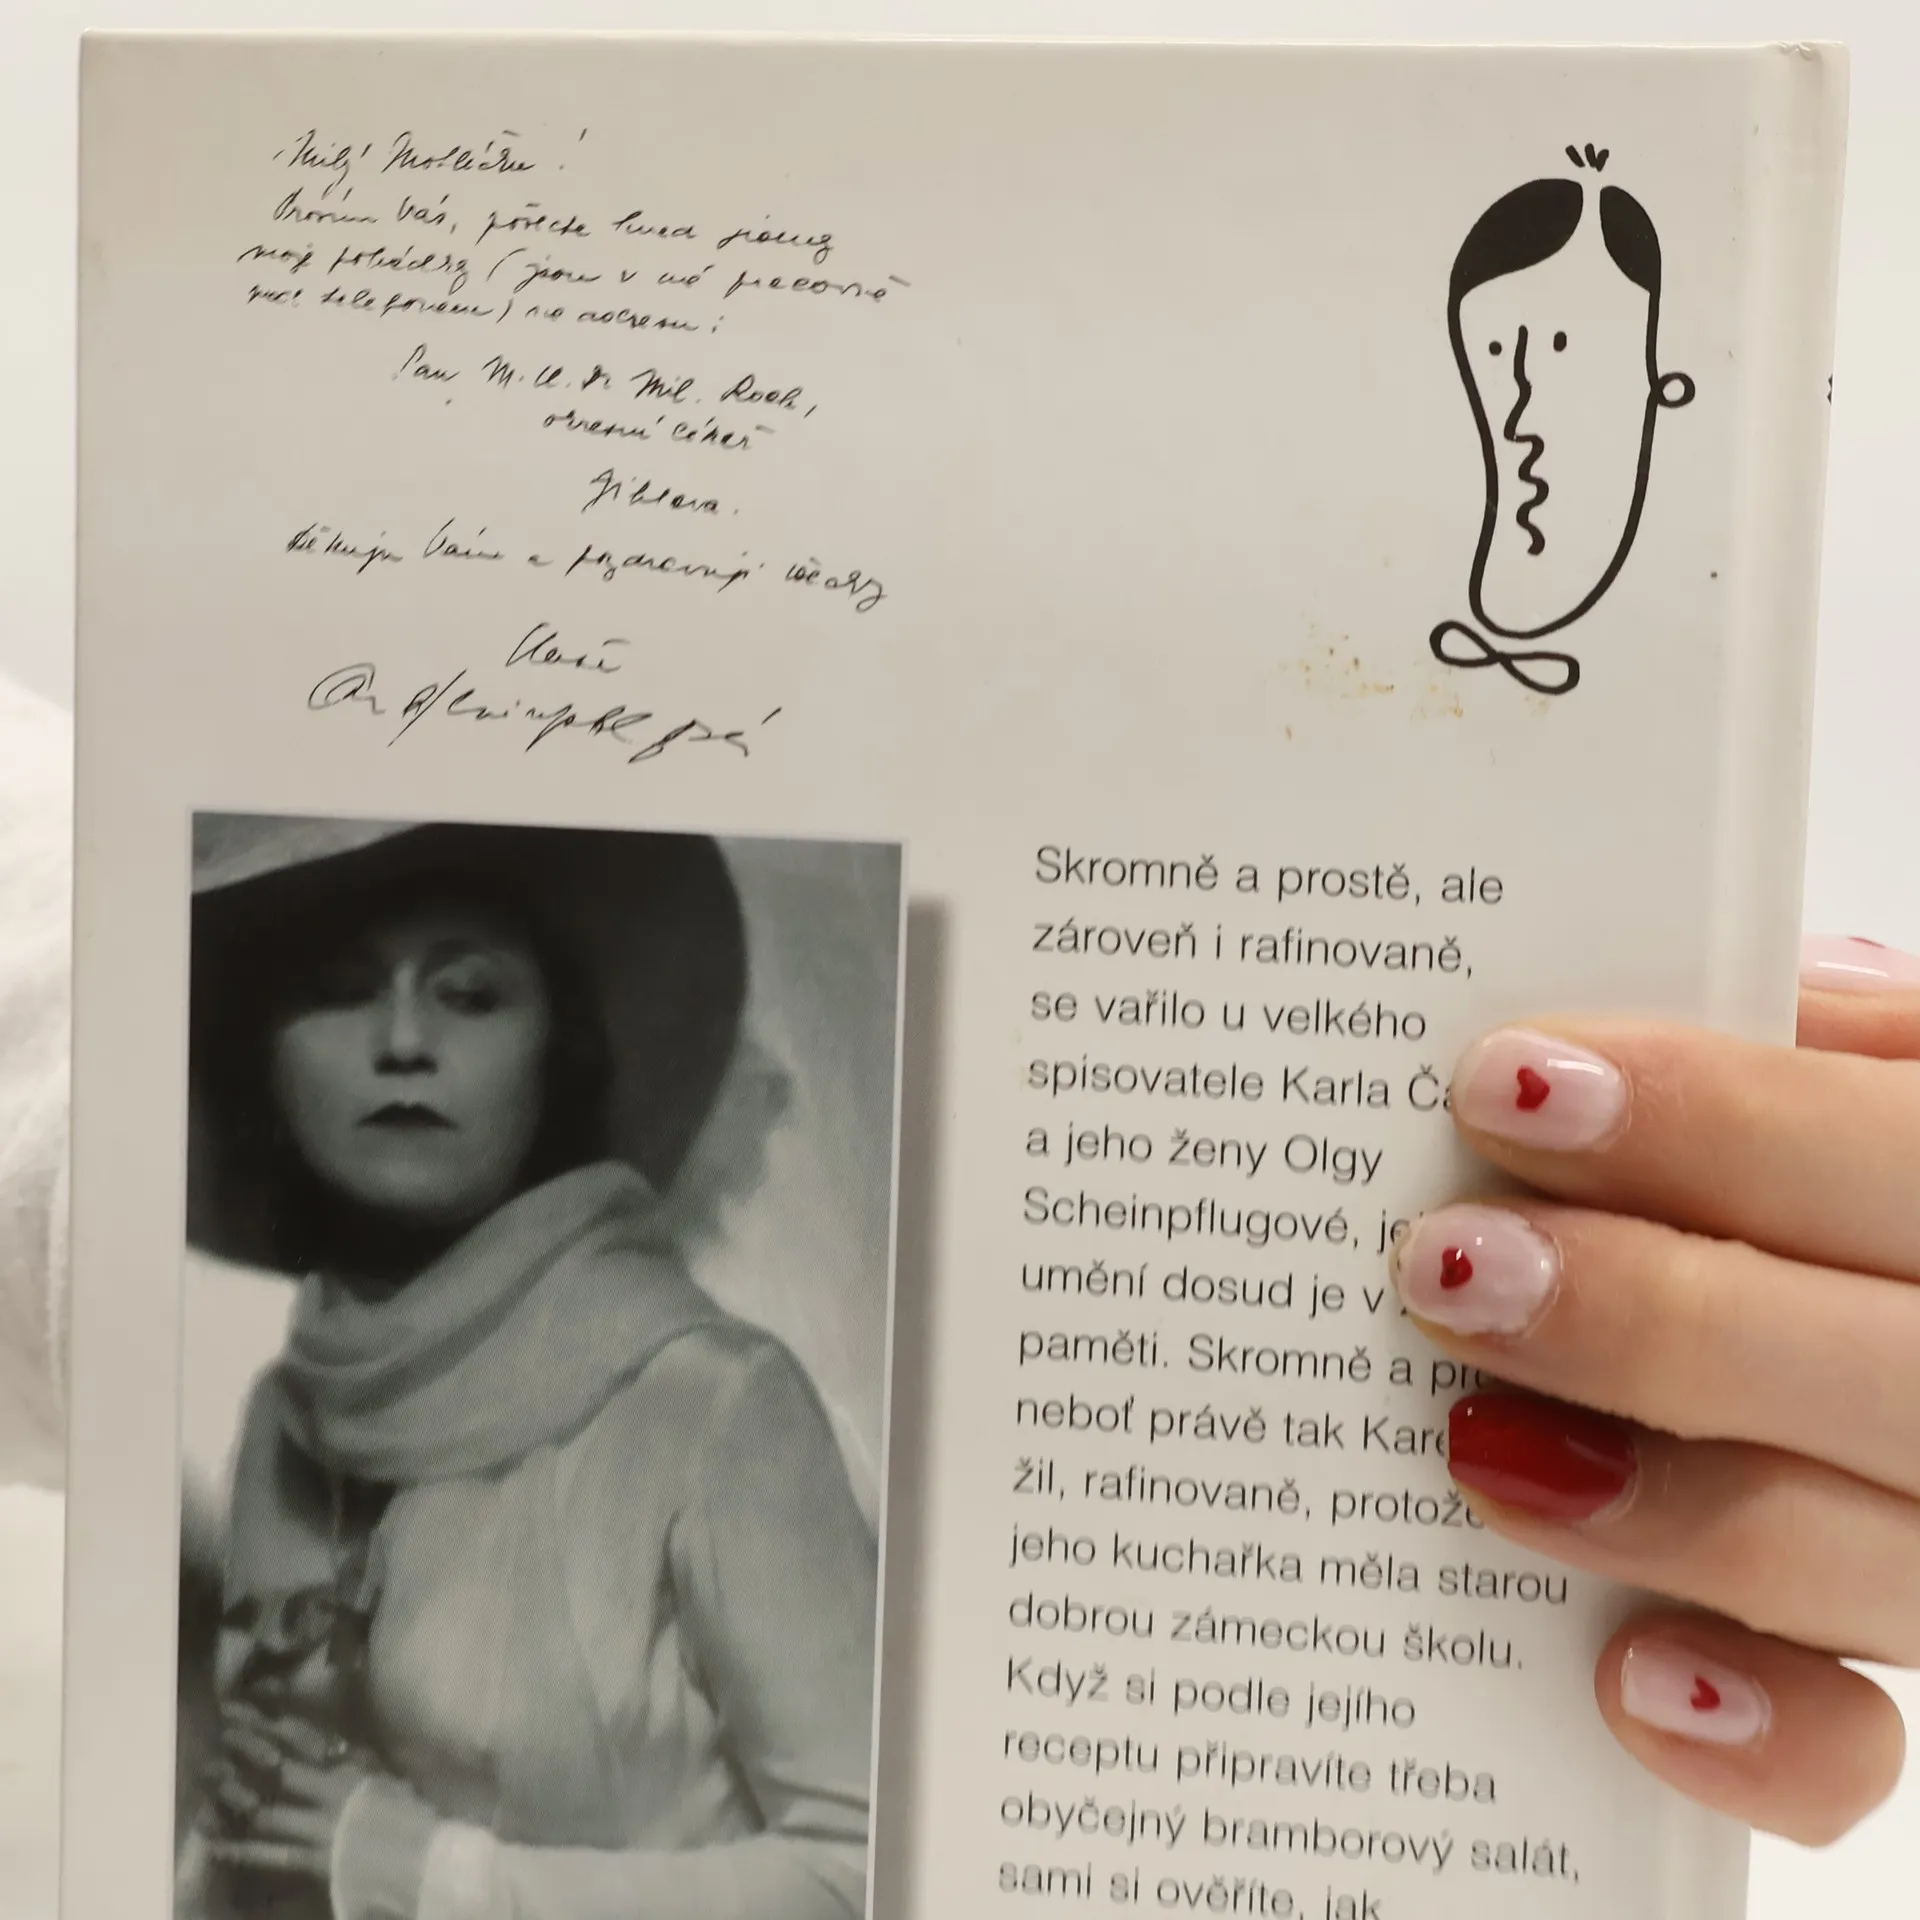 Milý Mošličku!
Prosím Vás, pošlete hned
moje pohádky (jsou v mé pracovně
telefonem) na adresu:
Pan M.U.Dr Mil. Roch,
okresní lékař
Jihlava.
Děkuju Vám a pozdravuji všecky
Vaše
Scheinpflugová
Skromně a prostě, ale
zároveň i rafinovaně,
se vařilo u velkého
spisovatele Karla Ča
a jeho ženy Olgy
Scheinpflugové, je
umění dosud je v
paměti. Skromně a pr
neboť právě tak Kare
žil, rafinovaně, protože
jeho kuchařka měla starou
dobrou zámeckou školu.
Když si podle jejího
receptu připravíte třeba
obyčejný bramborový salát,
sami si ověříte, jak